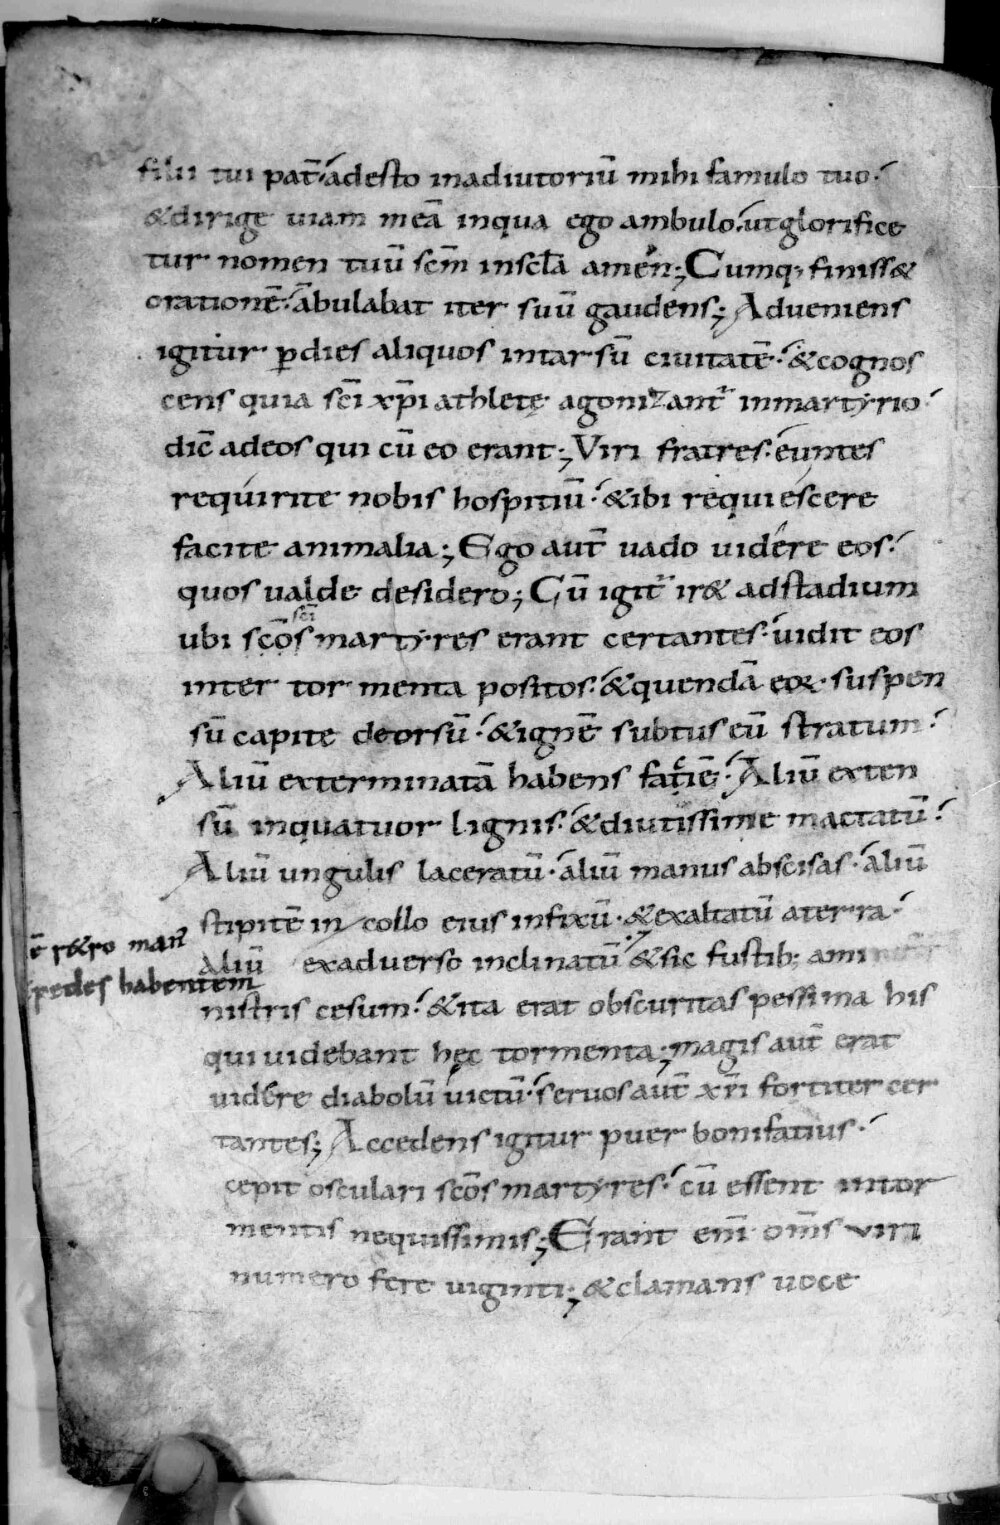 filii tui pat̄ adesto inadiutoriū mihi famulo tuo.
&dirige uiam meā inqua ego ambulo. utglorifice
tur nomen tuū sc̄m inscl̄a amen; Cumq; finiss&
orationē. ābulabat iter suū gaudens; Adueniens
igitur ꝑdies aliquos intarsū ciuitatē. &cognos
cens quia sc̄i xp̄i athletę agonizant᷑ inmartyrio
dic̄ adeos qui cū eo erant; Viri fratres. euntes
requirite nobis hospitiū. &ibi requiescere
facite animalia; Ego aut̄ uado uidere eos.
quos ualde desidero; Cū igit᷑ ir& adstadium
sc̄i
ubi sc̄os martyres erant certantes. uidit eos
inter tormenta positos. &quendā eoꝝ. suspen
sū capite deorsū. &ignē subtus eū stratum.
Aliū exterminatā habens fatiē. Aliū exten
sū inquatuor lignis. &diutissime mactatū.
Aliū ungulis laceratū. aliū manus abscisas. aliū
stipitē in collo eius infixū. &exaltatū aterra.
ē r&ro man᷑
aliū exaduerso inclinatū &sic fustib; ami
pedes habentem
nistris cesum. &ita erat obscuritas pessima his
qui uidebant hęc tormenta; magis aut̄ erat
uidere diabolū uictū. seruos aut̄ xp̄i fortiter cer
tantes; Accedens igitur puer bonifatius.
cepit osculari sc̄os martyres. cū essent intor
mentis nequissimis; Erant eni̅ om̄s viri
numero fere uiginti; &clamans uoce